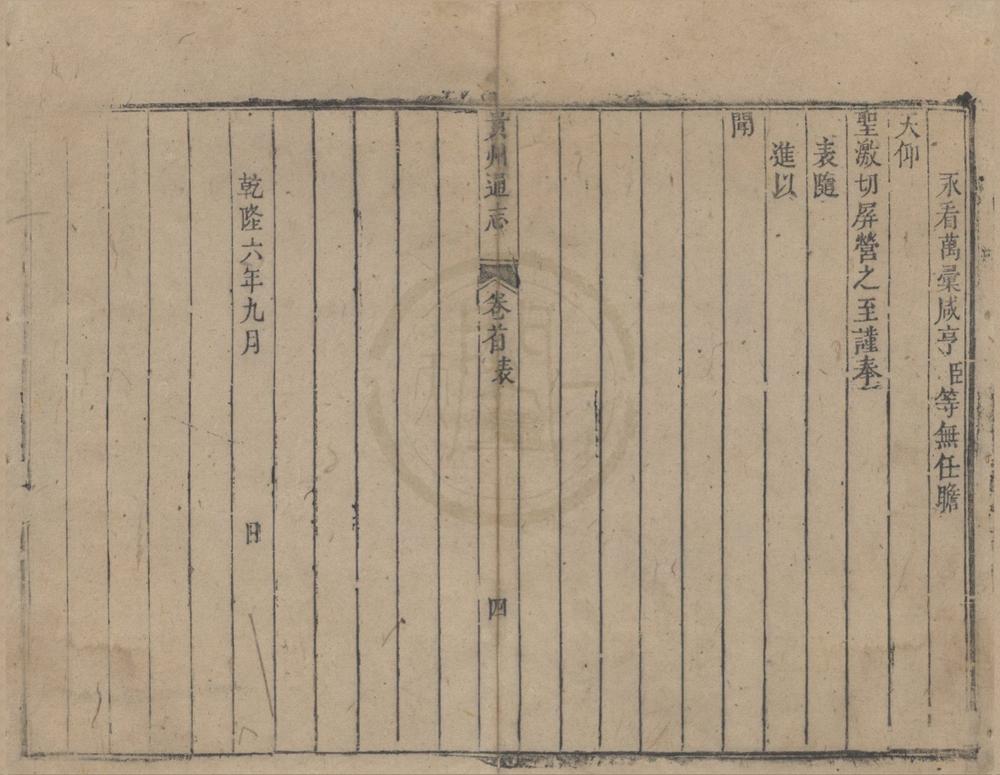 永看萬彙咸亨臣等無任瞻
天仰
聖激切屏營之至謹奉
表隨
進以
聞
貴州通志 卷首 表 四
乾隆六年九月 日